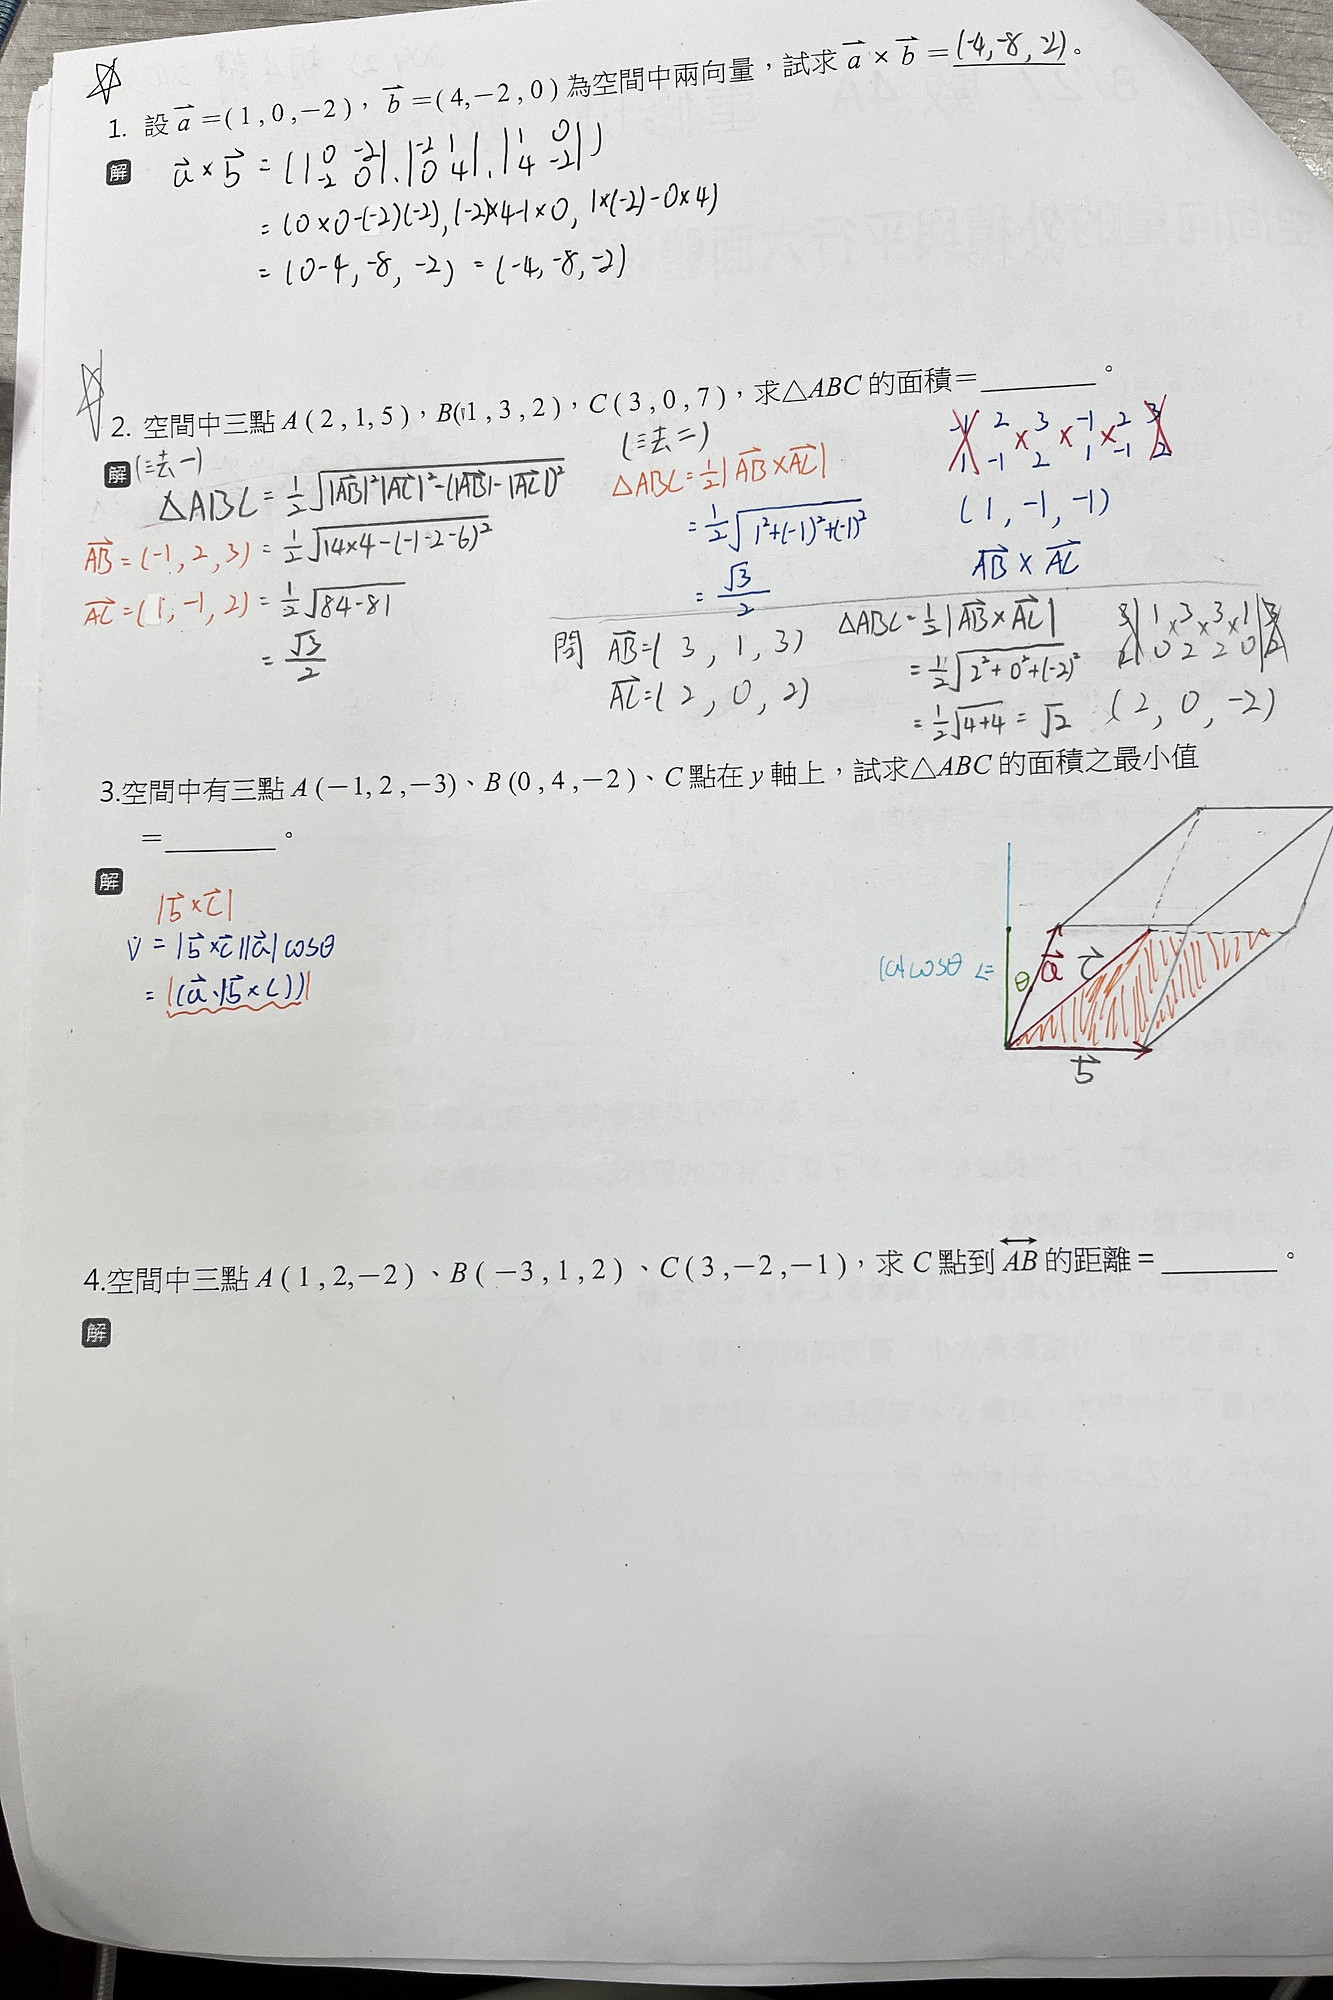 1. 設 a⃗ =(1,0,−2),b⃗ =(4,−2,0) 為空間中兩向量,試求 a⃗ × b⃗ = (-4,-8,2)。
解 a⃗ × b⃗ = (|0 -2; -2 0|, |-2 1; 0 4|, |1 0; 4 -2|)
= (0×0-(-2)(-2), (-2)×4-1×0, 1×(-2)-0×4)
= (0-4, -8, -2) = (-4, -8, -2)
2. 空間中三點 A(2,1,5),B(1,3,2),C(3,0,7),求△ABC 的面積=______。
解 (法一)
△ABC = 1/2 √(|AB|²|AC|²-(|AB|-|AC|)²)
AB = (-1, 2, 3) = 1/2 √(14×4-(-1-2-6)²)
AC = (1, -1, 2) = 1/2 √(84-81)
= √3/2
(法二)
△ABC = 1/2 |AB × AC|
= 1/2 √(1²+(-1)²+(-1)²)
= √3/2
2 3 -1 2 3
1 -1 2 1 -1 2
(1, -1, -1)
AB × AC
問 AB = (3, 1, 3)
AC = (2, 0, 2)
△ABC = 1/2 |AB × AC|
= 1/2 √(2²+0²+(-2)²)
= 1/2 √(4+4) = √2
3 1 3 3 1 3
2 0 2 2 0 2
(2, 0, -2)
3.空間中有三點 A(−1,2,−3)、B(0,4,−2)、C 點在 y 軸上,試求△ABC 的面積之最小值
=______。
解
|b⃗ × c⃗|
V = |b⃗ × c⃗||a⃗| cosθ
= |(a⃗·(b⃗ × c))|
|a|cosθ
θ
a⃗
c⃗
b⃗
4.空間中三點 A(1,2,−2)、B(−3,1,2)、C(3,−2,−1),求 C 點到 AB 的距離=______。
解